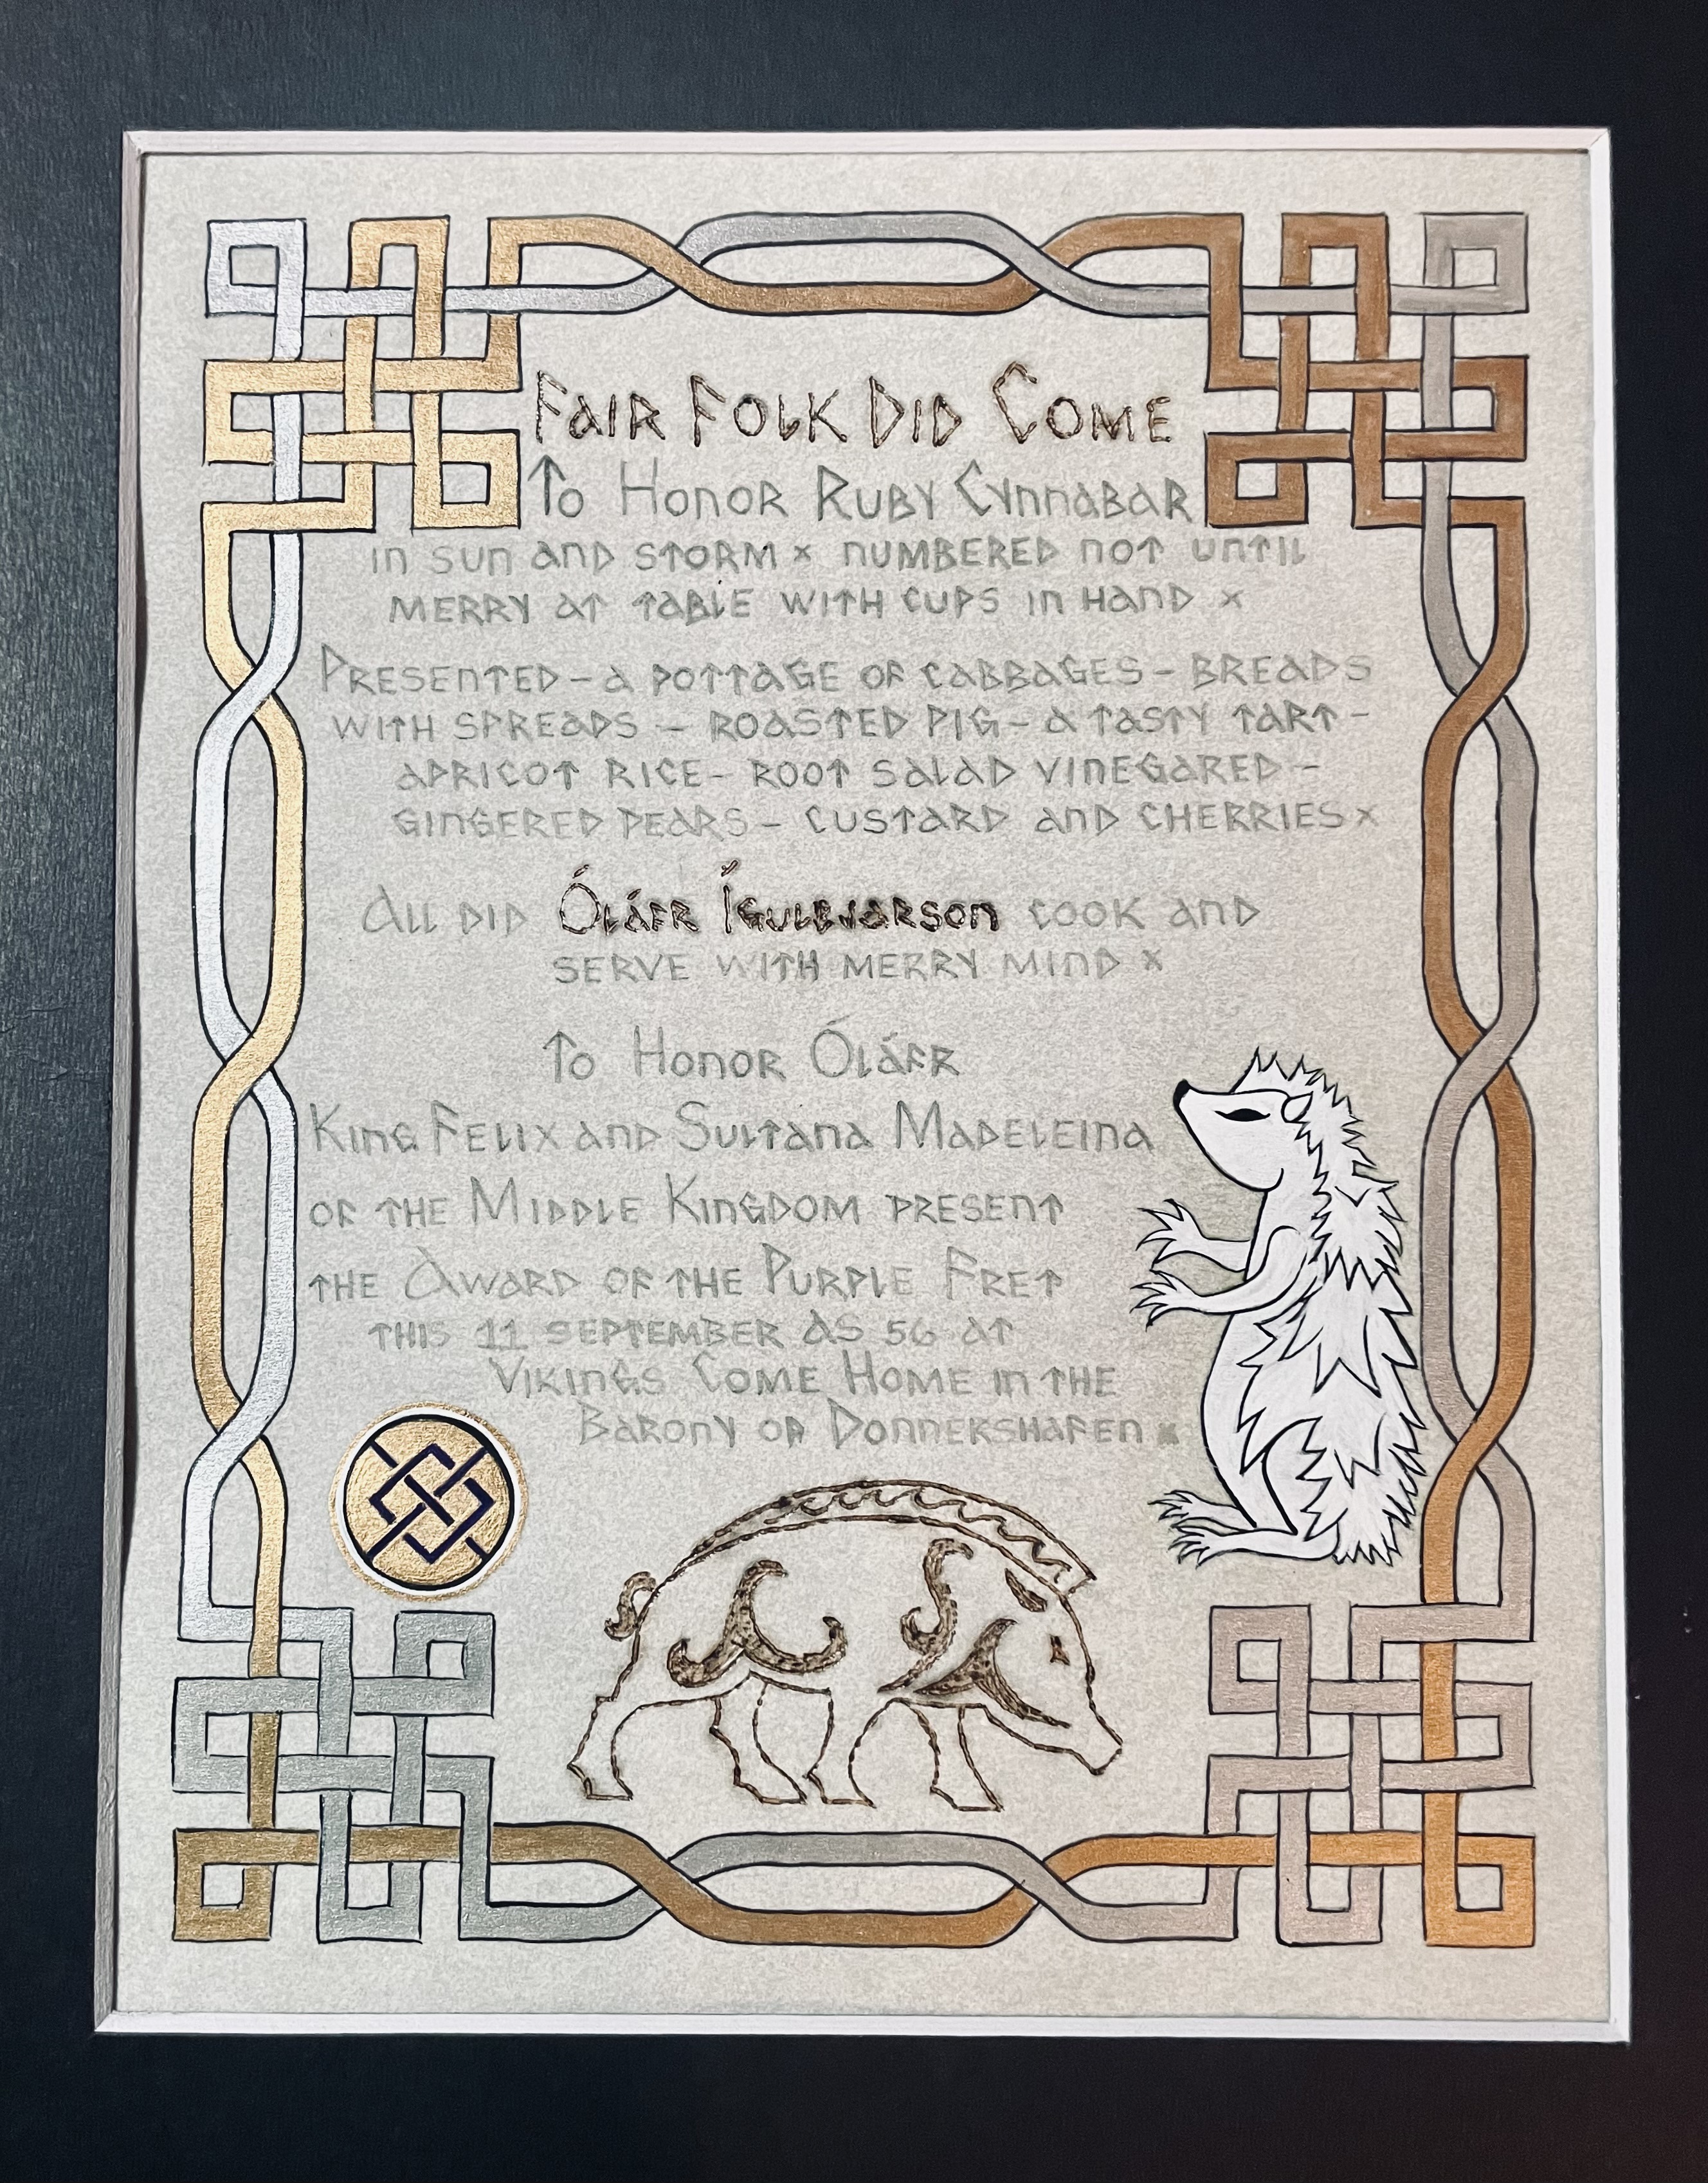 Fair Folk Did Come
To Honor Ruby Cynnabar
in sun and storm x numbered not until
merry at table with cups in hand x
Presented – a pottage of cabbages – breads
with spreads – roasted pig – a tasty tart –
apricot rice – root salad vinegared –
gingered pears – custard and cherries x
All did Óláfr Ígulbjarson cook and
serve with merry mind x
To Honor Óláfr
King Felix and Sultana Madeleina
of the Middle Kingdom present
the Award of the Purple Fret
this 11 September AS 56 at
Vikings Come Home in the
Barony of Donnershafen x